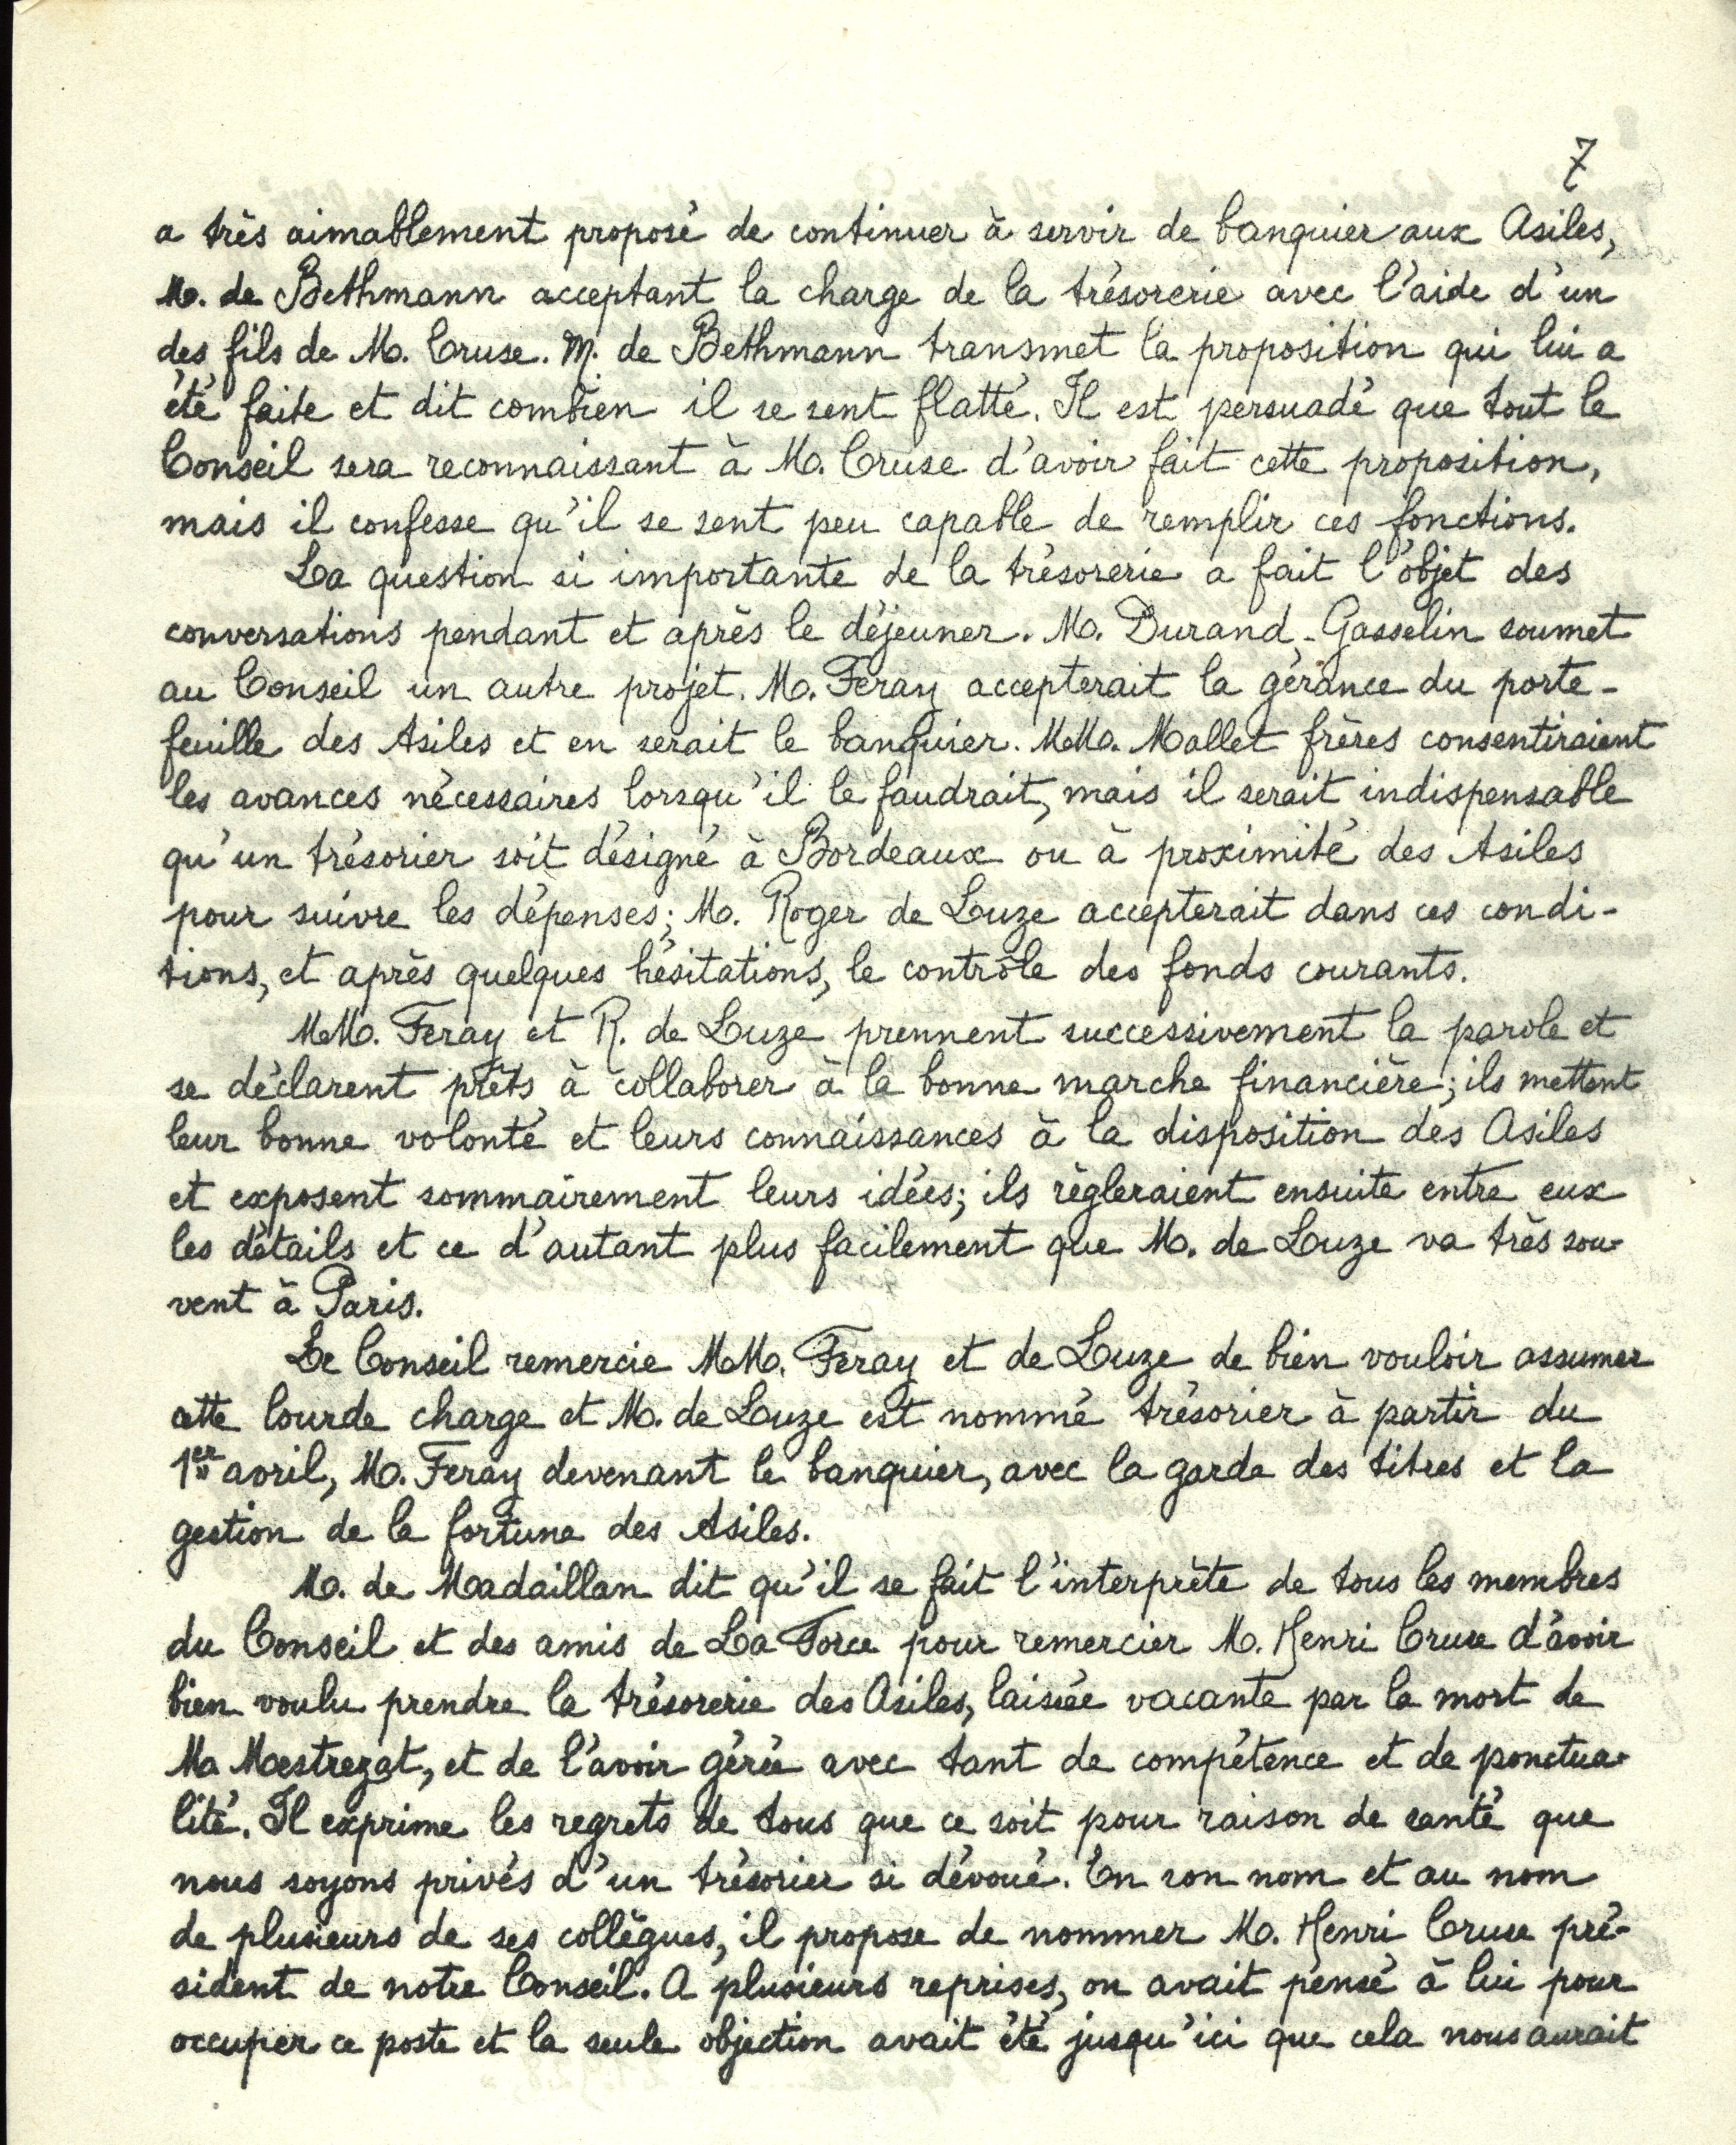 7
a très aimablement proposé de continuer à servir de banquier aux Asiles,
M. de Bethmann acceptant la charge de la trésorerie avec l'aide d'un
des fils de M. Cruse. M. de Bethmann transmet la proposition qui lui a
été faite et dit combien il se sent flatté. Il est persuadé que tout le
Conseil sera reconnaissant à M. Cruse d'avoir fait cette proposition,
mais il confesse qu'il se sent peu capable de remplir ces fonctions.
La question si importante de la trésorerie a fait l'objet des
conversations pendant et après le déjeuner. M. Durand-Gasselin soumet
au Conseil un autre projet. M. Feray accepterait la gérance du porte-
feuille des Asiles et en serait le banquier. MM. Mallet frères consentiraient
les avances nécessaires lorsqu'il le faudrait, mais il serait indispensable
qu'un trésorier soit désigné à Bordeaux ou à proximité des Asiles
pour suivre les dépenses; M. Roger de Luze accepterait dans ces condi-
tions, et après quelques hésitations, le contrôle des fonds courants.
MM. Feray et R. de Luze prennent successivement la parole et
se déclarent prêts à collaborer à la bonne marche financière; ils mettent
leur bonne volonté et leurs connaissances à la disposition des Asiles
et exposent sommairement leurs idées; ils règleraient ensuite entre eux
les détails et ce d'autant plus facilement que M. de Luze va très sou-
vent à Paris.
Le Conseil remercie MM. Feray et de Luze de bien vouloir assumer
cette lourde charge et M. de Luze est nommé trésorier à partir du
1er avril, M. Feray devenant le banquier, avec la garde des titres et la
gestion de la fortune des Asiles.
M. de Madaillan dit qu'il se fait l'interprète de tous les membres
du Conseil et des amis de La Force pour remercier M. Henri Cruse d'avoir
bien voulu prendre la trésorerie des Asiles, laissée vacante par la mort de
M. Mestrezat, et de l'avoir gérée avec tant de compétence et de ponctua-
lité. Il exprime les regrets de tous que ce soit pour raison de santé que
nous soyons privés d'un trésorier si dévoué. En son nom et au nom
de plusieurs de ses collègues, il propose de nommer M. Henri Cruse pré-
sident de notre Conseil. A plusieurs reprises, on avait pensé à lui pour
occuper ce poste et la seule objection avait été jusqu'ici que cela nous aurait